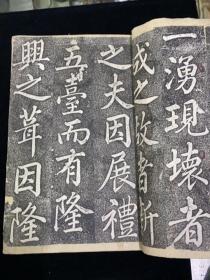 一湧現壞者
或之故者祈
之夫因展禮
五臺而有隆
興之葺因隆